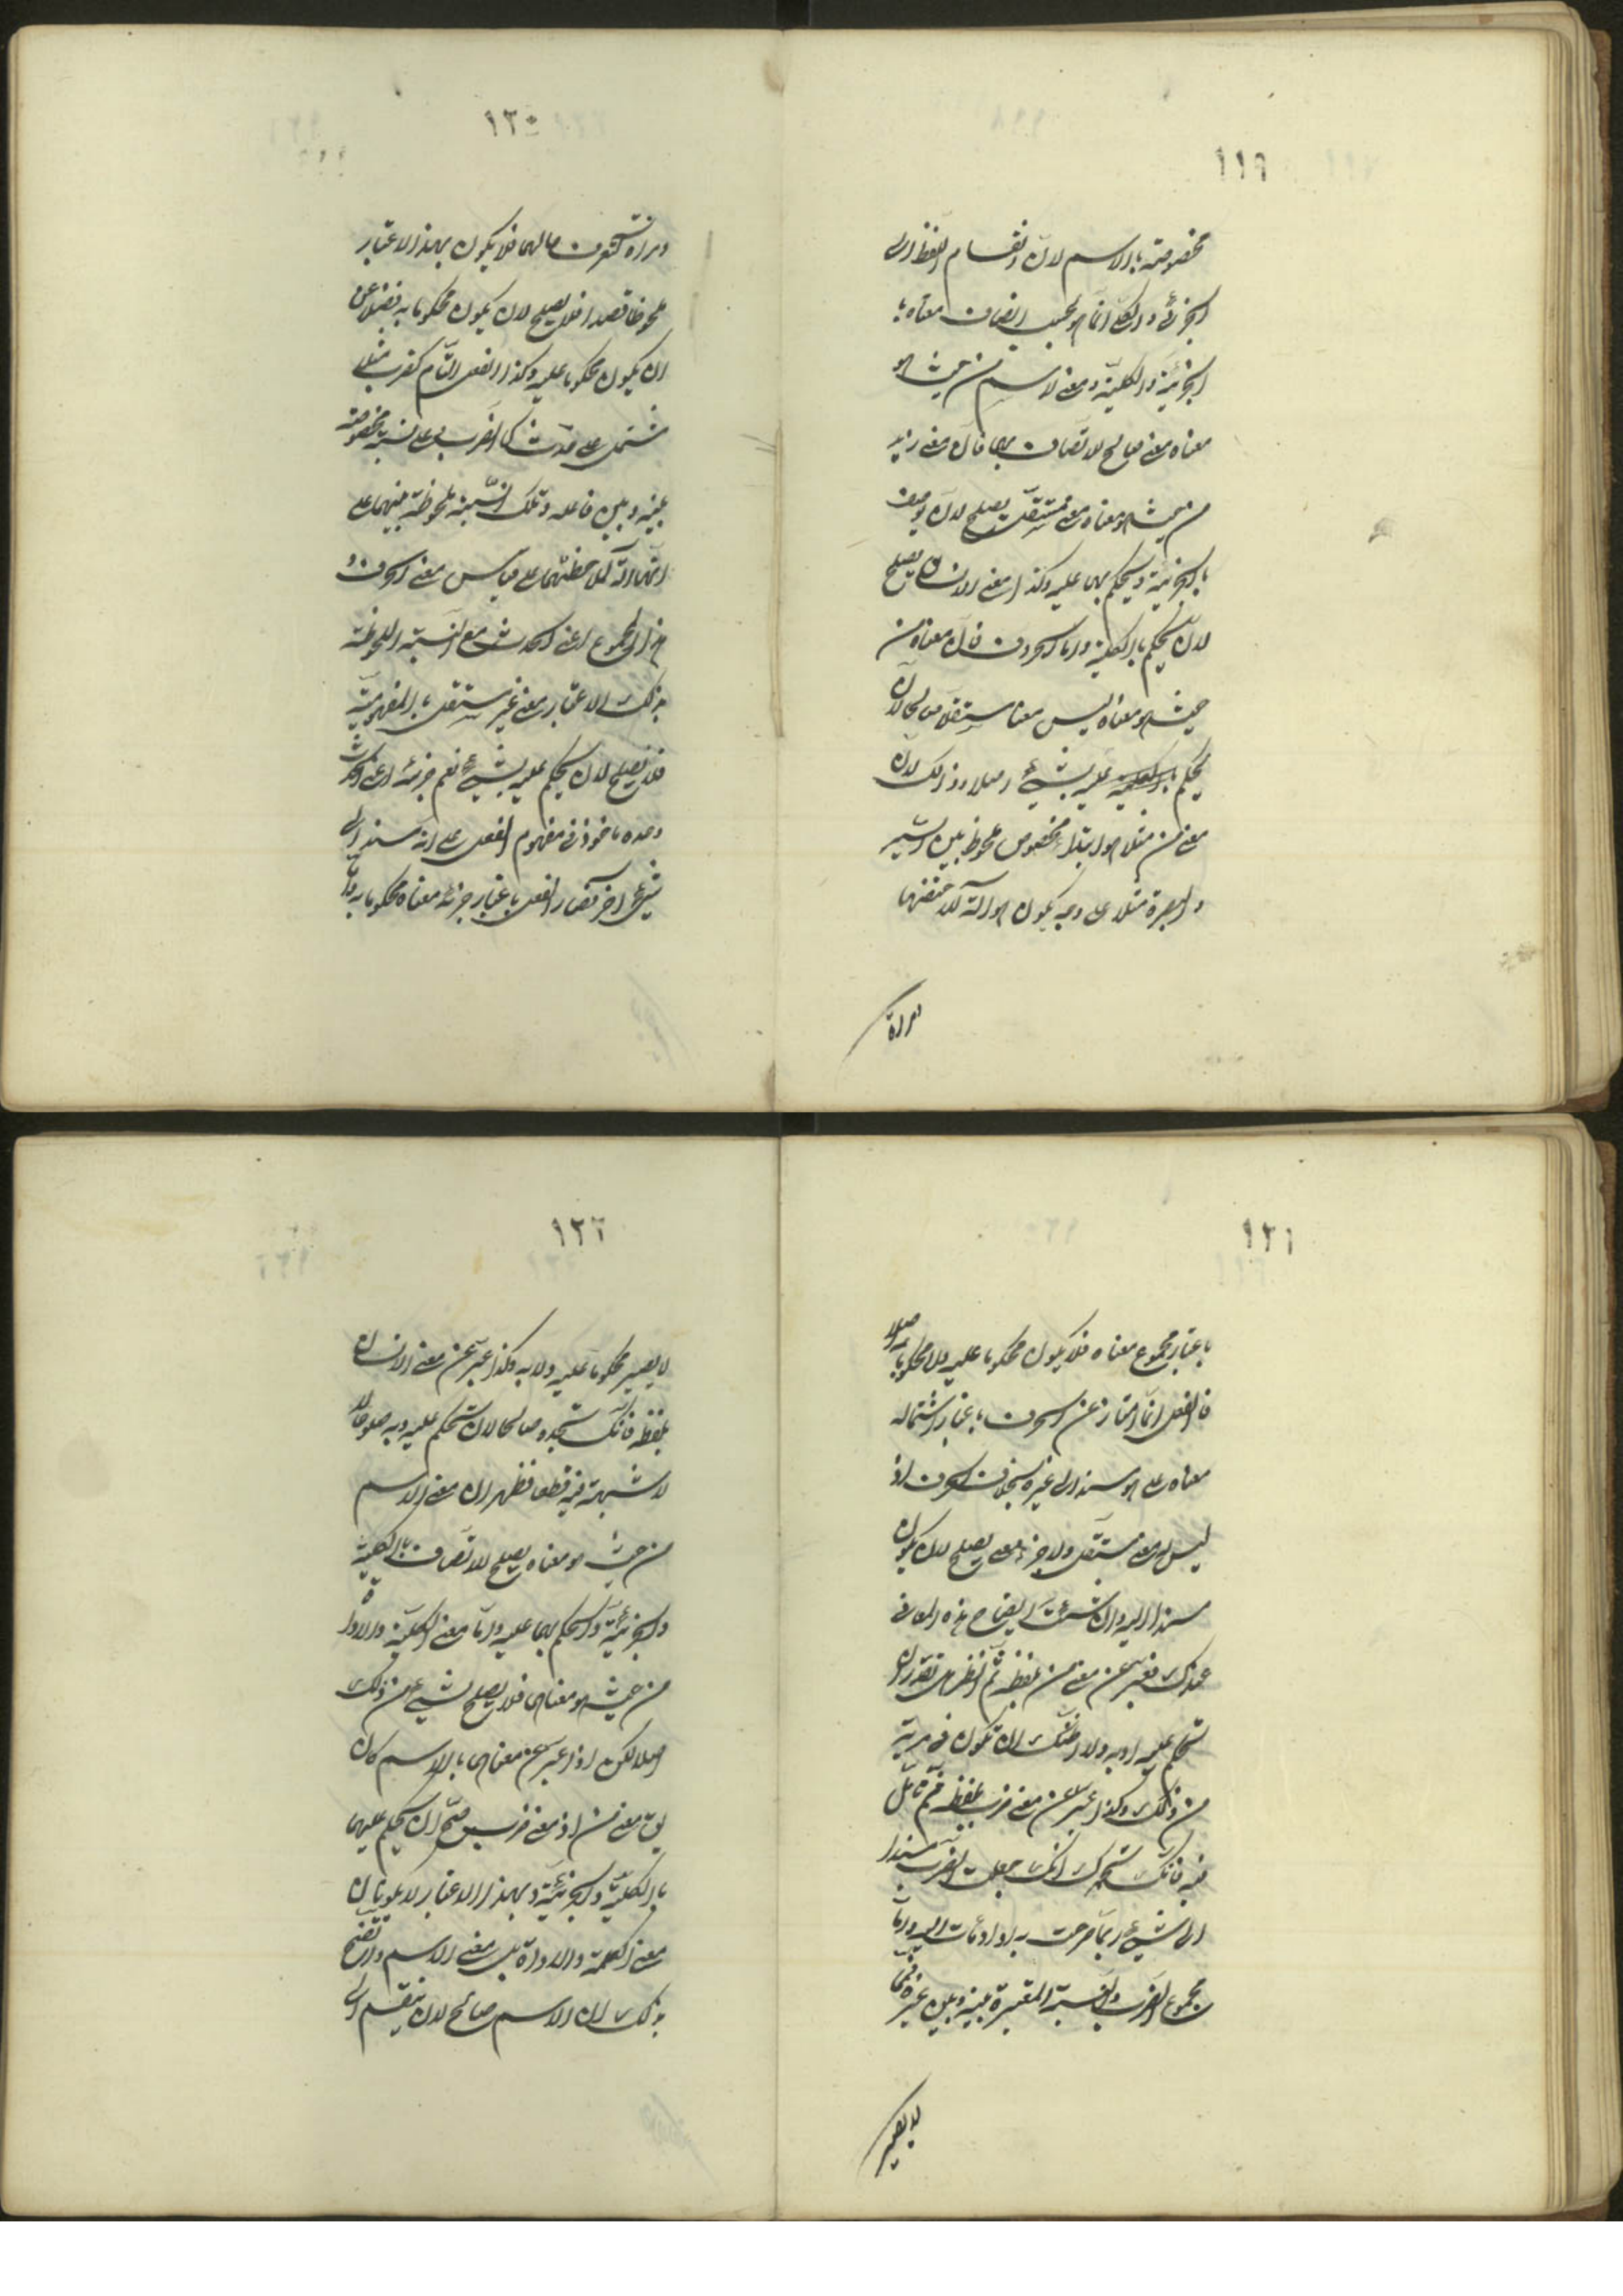 ١١٩
مخصوصة بالاسم لان انقسام اللفظ الى
الجزئى والكلى انما هو بحسب اتصاف معناه با
لجزئية والكلية ومعنى الاسم من حيث هو
معناه معنى صالح للاتصاف بهما فان معنى زيد
من حيث هو معناه معنى مستقل يصلح لان يوصف
بالجزئية ويحكم بها عليه وكذا معنى الانسان يصلح
لان يحكم بالكلية واما الحروف فان معناه من
حيث هو معناه ليس معنا مستقلا صالحا لان
يحكم عليه بشيئ اصلا وذلك لان
معنى من مثلا هو ابتداء مخصوص ملحوظ بين السير
والبصرة مثلا على وجه يكون هو آلة لملاحظتهما
ومراة
١٢٠
ومراة لتعرف حالهما فلا يكون بهذا الاعتبار
ملحوظا قصدا فلا يصلح لان يكون محكوما به فضلا عن
ان يكون محكوما عليه وكذا الفعل التام كضرب مثلا
مشتمل على حدث كالضرب وعلى نسبة مخصوصة
بينه وبين فاعله وتلك النسبة ملحوظة بينهما على
انها آلة لملاحظتهما على قياس معنى الحرف و
هذا المجموع اعنى الحدث مع النسبة الملحوظة
بذلك الاعتبار معنى غير مستقل بالمفهومية
فلا يصلح لان يحكم عليه بشيئ نعم جزئه اعنى الحدث
وحده ماخوذ فى مفهوم الفعل على انه مسند الى
شيئ اخر فصار الفعل باعتبار جزئه معناه محكوما به واما
١٢١
باعتبار مجموع معناه فلا يكون محكوما عليه ولا محكوما به اصلا
فالفعل انما امتاز عن الحرف باعتبار اشتماله
معناه على هو مسند الى غيره بخلاف الحرف اذ
ليس له معنى مستقل ولا جزء معنى يصلح لان يكون
مسندا اليه وان شئت ايضاح هذه المعانى
عندك فعبر عن معنى من بلفظه ثم انظر هل تقدر ان
تحكم عليه او به ولا اظنك ان تكون فى مرية
من ذلك وكذا عبر عن معنى ضرب بلفظه ثم تامل
فيه فانك انك جعلت الضرب مسندا
الى شيئ ربما صرحت به او اومأت اليه واما
مجموع الضرب والنسبة المعتبرة بينه وبين غيره فمما
لا يصير
١٢٢
لا يصير محكوما عليه ولا به وكذا عبر عن معنى الانسان
بلفظه فانك تجده صالحا لان تحكم عليه وبه صلوحا
لا شبهة فيه قطعا فظهر ان معنى الاسم
من حيث هو معناه يصلح للاتصاف بالكلية
والجزئية والحكم بهما عليه واما معنى الكلمة والاداة
من حيث هو معناهما فلا يصلح لشيئ من ذلك
اصلا لكن اذا عبر عن معناهما بالاسم كان
يق معنى من او معنى ضرب صح ان يحكم عليهما
بالكلية والجزئية وبهذا الاعتبار لا يكونان
معنى الكلمة والاداة بل معنى الاسم واتضح
بذلك ان الاسم صالح لان ينقسم الى